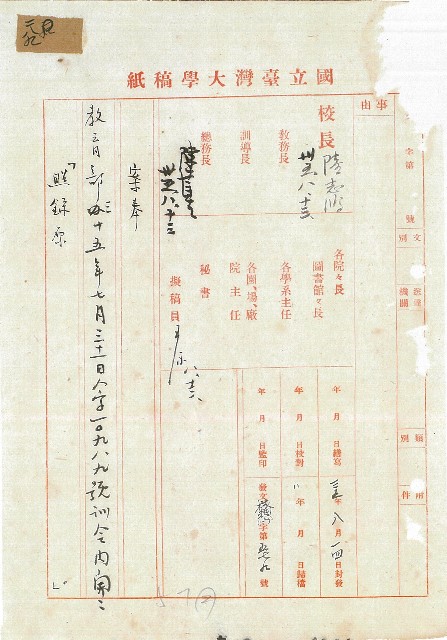 國立臺灣大學稿紙
事由
字第
號
文別
送達機關
類別
附件
校長
陸志鴻
卅五 八、十三
教務長
訓導長
總務長
陳
卅五 八、十三
各院長
圖書館館長
各學系主任
各園、場、廠
院主任
秘書
擬稿員
八、十三
年月日繕寫
年八月一四日封發
年月日校對
年月日歸檔
年月日監印
發文
字第
號
案奉
教育部卅十五年七月三十一日人字一〇九八九號訓令內開:
「照錄原
」